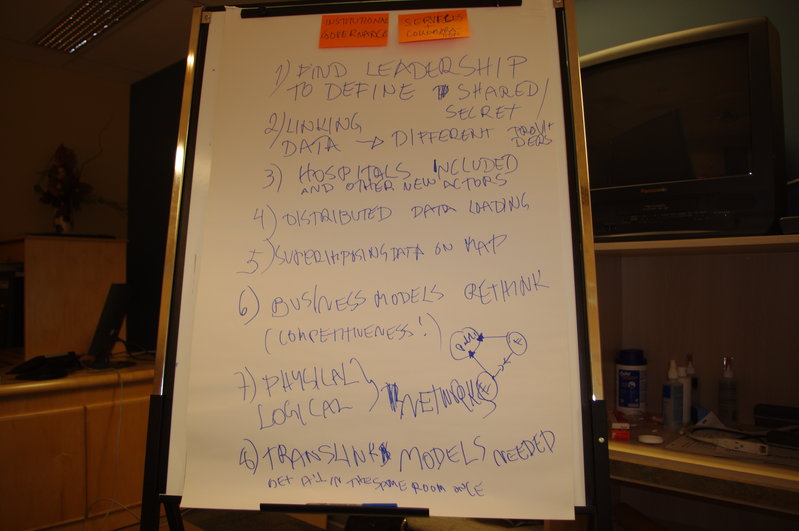 INSTITUTIONAL
GOVERNANCE
SERVICES
1) FIND LEADERSHIP
TO DEFINE SHARED/
SECRET
2) LINKING
DATA → DIFFERENT PROVI
DERS
3) HOSPITALS INCLUDED
AND OTHER NEW ACTORS
4) DISTRIBUTED DATA LOADING
5) SUPERIMPOSING DATA ON MAP
6) BUSINESS MODELS RETHINK
(COMPETITIVENESS!)
7) PHYSICAL
LOGICAL } NETWORKS
8) TRANSLINK MODELS NEEDED
GET ALL IN THE SAME ROOM ONCE
Panasonic